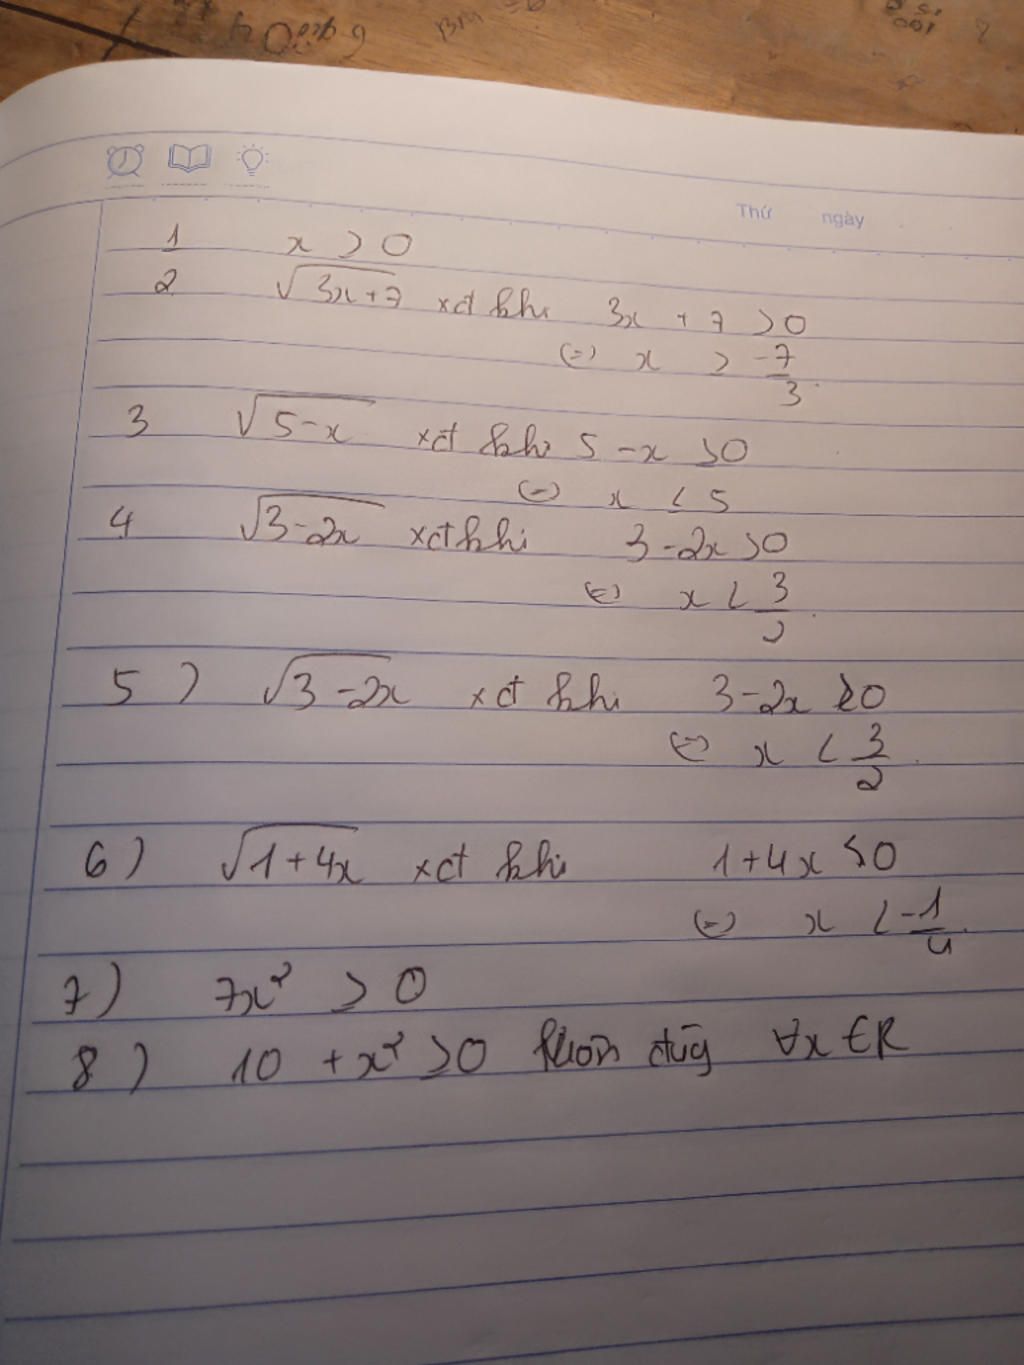 Thứ ngày
1 x > 0
2 √3x+7 xđ khi 3x + 7 > 0
(=) x > -7/3.
3 √5-x xđ khi 5 - x > 0
(=) x < 5
4 √3-2x xđ khi 3-2x > 0
(=) x < 3/2.
5) √3-2x xđ khi 3-2x ≥ 0
(=) x < 3/2.
6) √1+4x xđ khi 1+4x < 0
(=) x < -1/4.
7) 7x² ≥ 0
8) 10 + x² ≥ 0 luôn đúg ∀x ∈ R